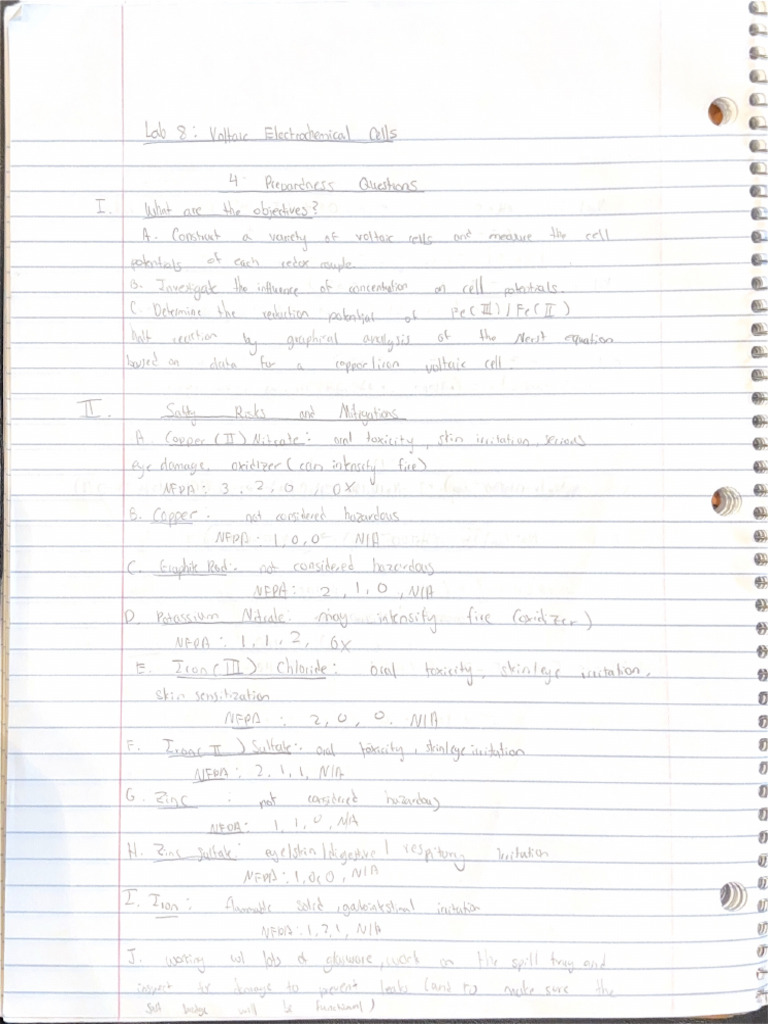 Lab 8: Voltaic Electrochemical Cells
4 Prepardness Questions
I. What are the objectives?
A. Construct a variety of voltaic cells and measure the cell
potentials of each redox couple.
B. Investigate the influence of concentration on cell potentials.
C. Determine the reduction potential of Fe(III)/Fe(II)
half reaction by graphical analysis of the Nerst equation
based on data for a copper/iron voltaic cell.
II. Safty Risks and Mitigations
A. Copper (II) Nitrate: oral toxicity, skin irritation, serious
eye damage, oxidizer (can intensify fire)
NFPA: 3, 2, 0, OX
B. Copper: not considered hazardous
NFPA: 1, 0, 0 N/A
C. Graphite Rod: not considered hazardous
NFPA: 2, 1, 0, N/A
D. Potassium Nitrate: may intensify fire (oxidizer)
NFPA: 1, 1, 2, OX
E. Iron (III) Chloride: oral toxicity, skin/eye irritation,
skin sensitization
NFPA: 2, 0, 0, N/A
F. Iron (II) Sulfate: oral toxicity, skin/eye irritation
NFPA: 2, 1, 1, N/A
G. Zinc: not considered hazardous
NFPA: 1, 1, 0, N/A
H. Zinc Sulfate: eye/skin/digestive/respitory irritation
NFPA: 1, 0, 0, N/A
I. Iron: flammable solid, irritation
NFPA: 1, 2, 1, N/A
J. working w/ lots of glassware, work on the spill tray and
inspect for damage to prevent leaks (and to make sure the
salt bridge will be functional)